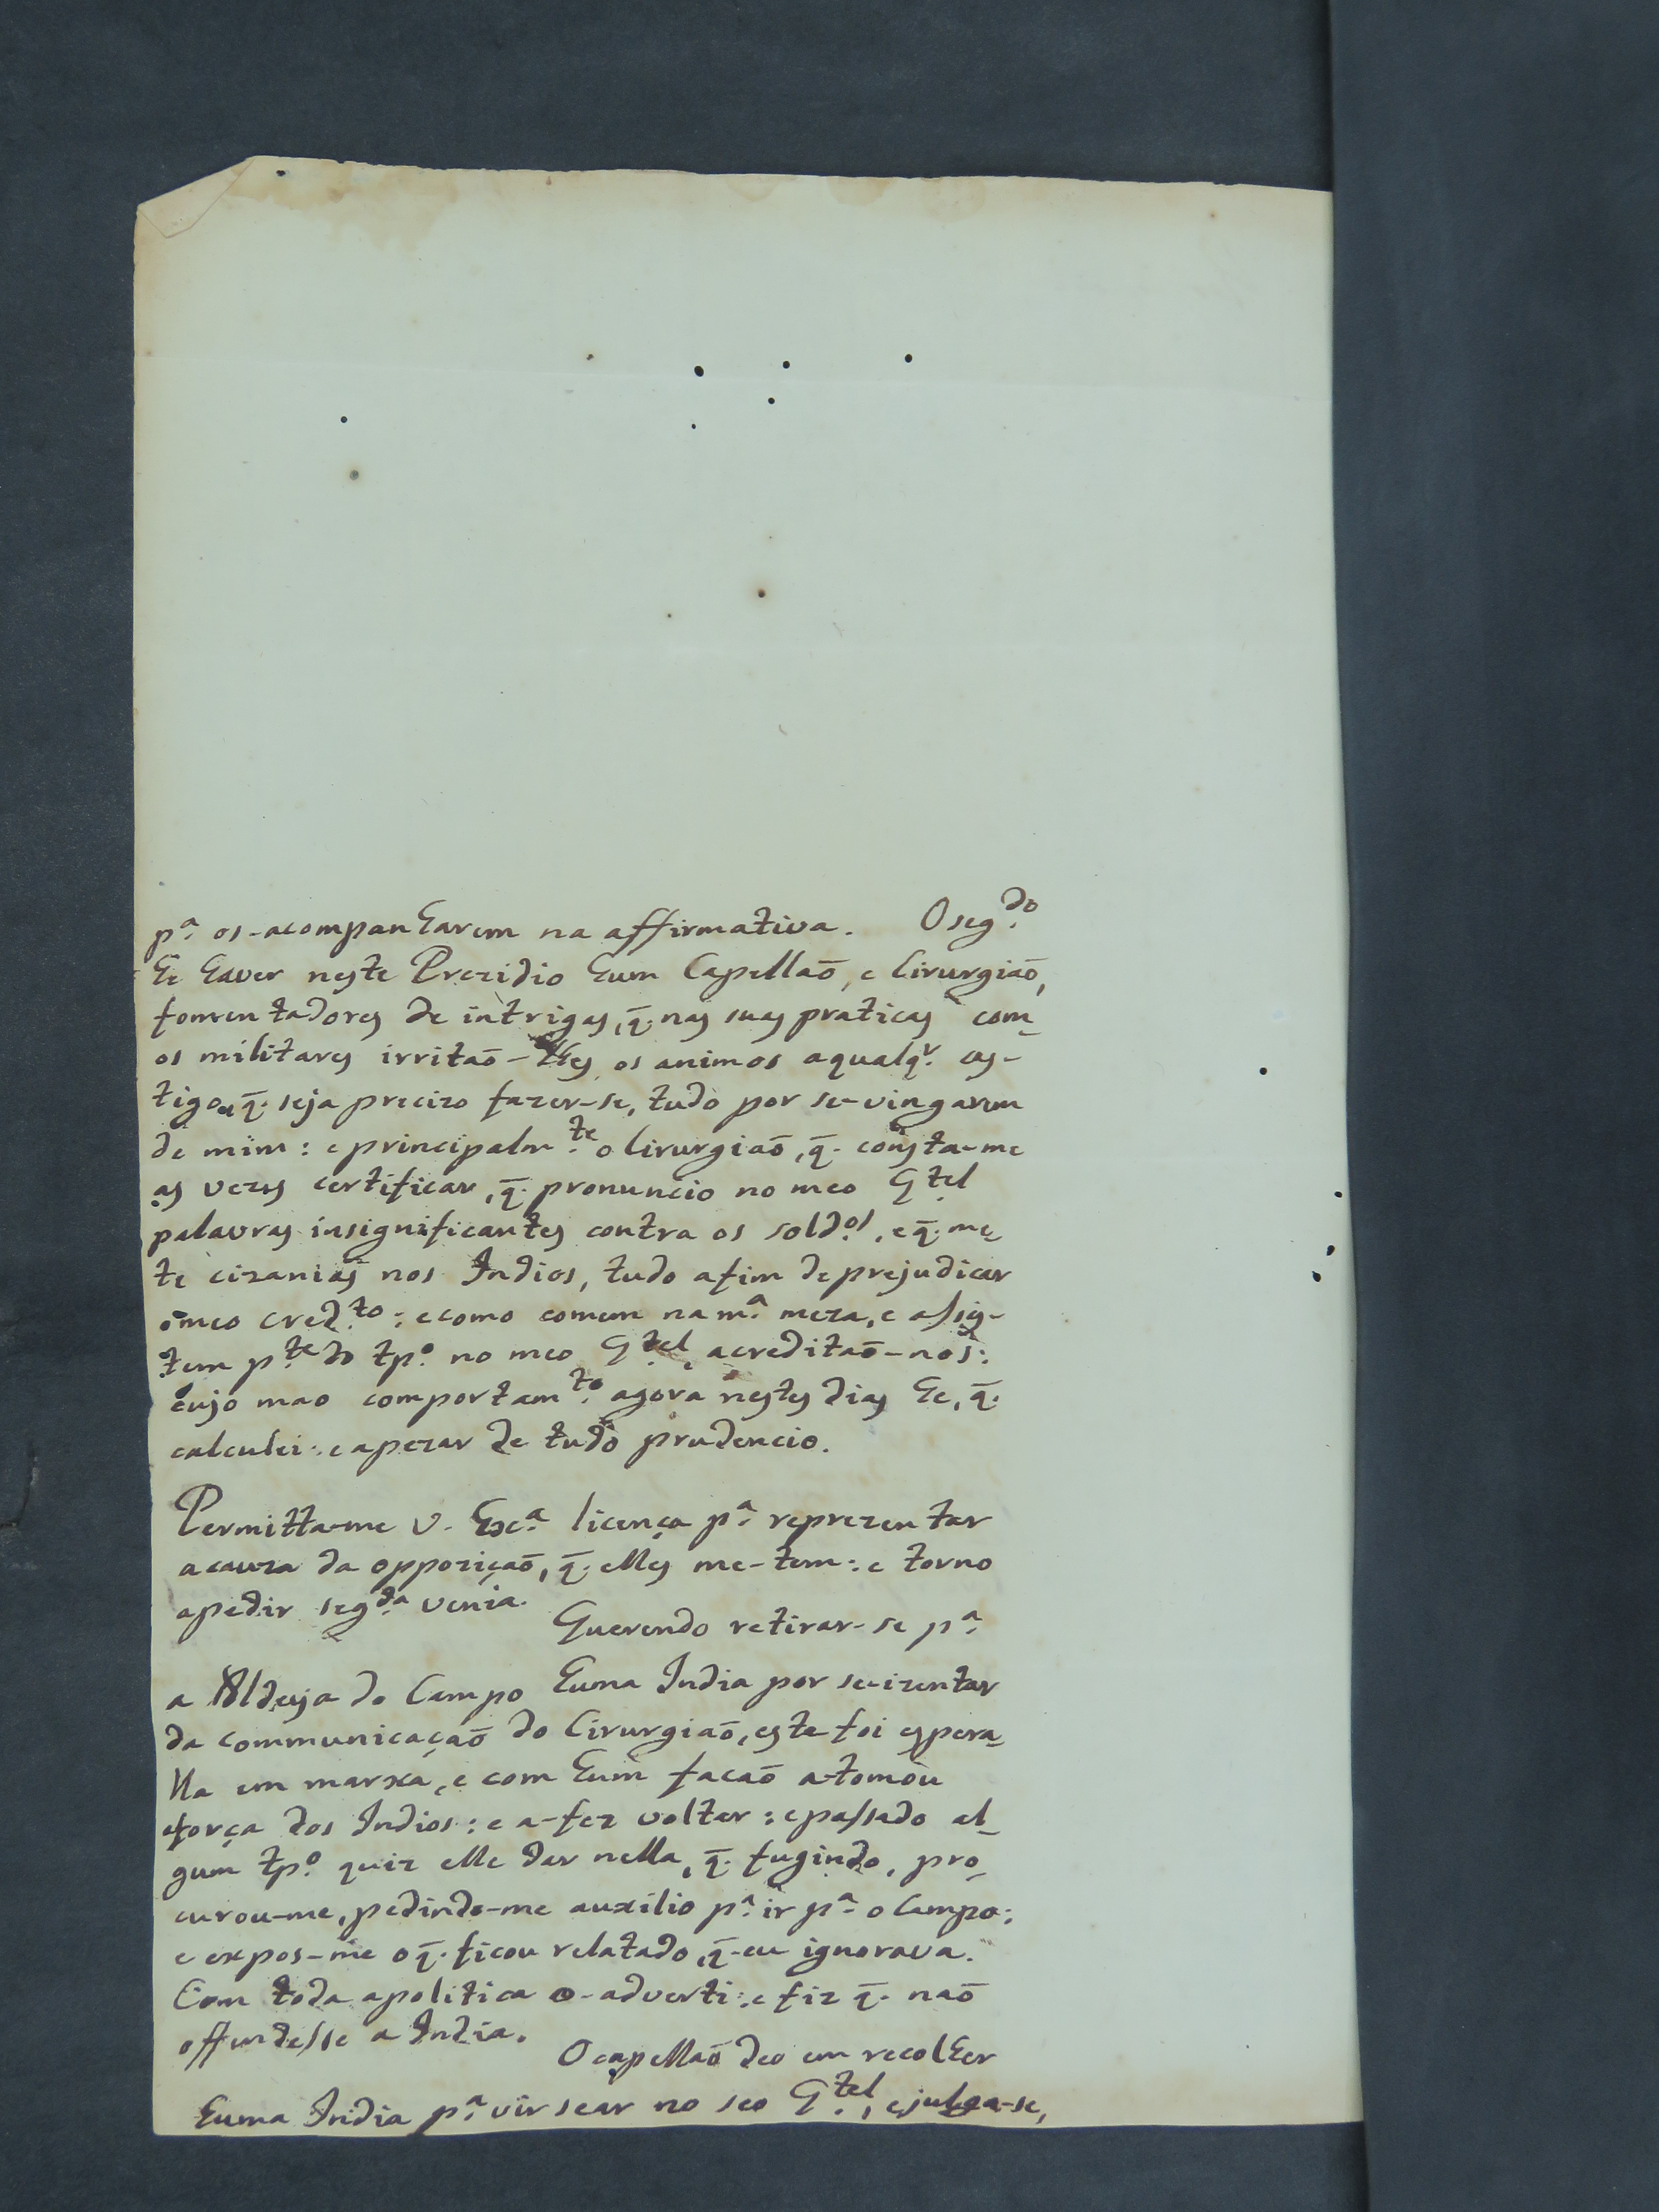 p.ª os-acompanharem na affirmativa. O seg.do
he haver neste Prezidio hum Capellaõ, e Cirurgiaõ,
fomentadores de intrigas, q̃. nas suas praticas com
os militares irritaõ-lhes os animos aqualq.r cas-
tigo, q̃. seja precizo fazer-se, tudo por se-vingarem
de mim: e principalm.te o Cirurgiaõ, q̃. consta-me
as vezes certificar, q̃. pronuncio no meo Q.tel
palavras insignificantes contra os sold.os, e q̃. me-
te cizanias nos Indios, tudo afim de prejudicar
o meo cred.to: e como comem na m.ª meza, e assis-
tem p.te do tp.o no meo Q.tel, acreditaõ-nos:
cujo mao comportam.to agora nestes dias he, q̃.
calculei: e apezar de tudo prudencio.
Permitta-me V. Exc.ª licença p.ª reprezentar
a cauza da oppoziçaõ, q̃. elles me-tem: e torno
apedir seg.da venia.
Querendo retirar-se p.ª
a Aldeya do Campo huma India por se-izentar
da communicaçaõ do Cirurgiaõ, este foi espera-
lla em marxa, e com hum facaõ a-tomou
força dos Indios: e a-fez voltar: e passado al-
gum tp.o quiz elle dar nella, q̃. fugindo, pro-
curou-me, pedindo-me auxilio p.ª ir p.ª o Campo:
e expos-me o q̃. ficou relatado, q̃. eu ignorava.
Com toda apolitica o-adverti: e fiz q̃. naõ
offendesse a India.
O capellaõ deo em recolher
huma India p.ª vir sear no seo Q.tel, e julga-se,